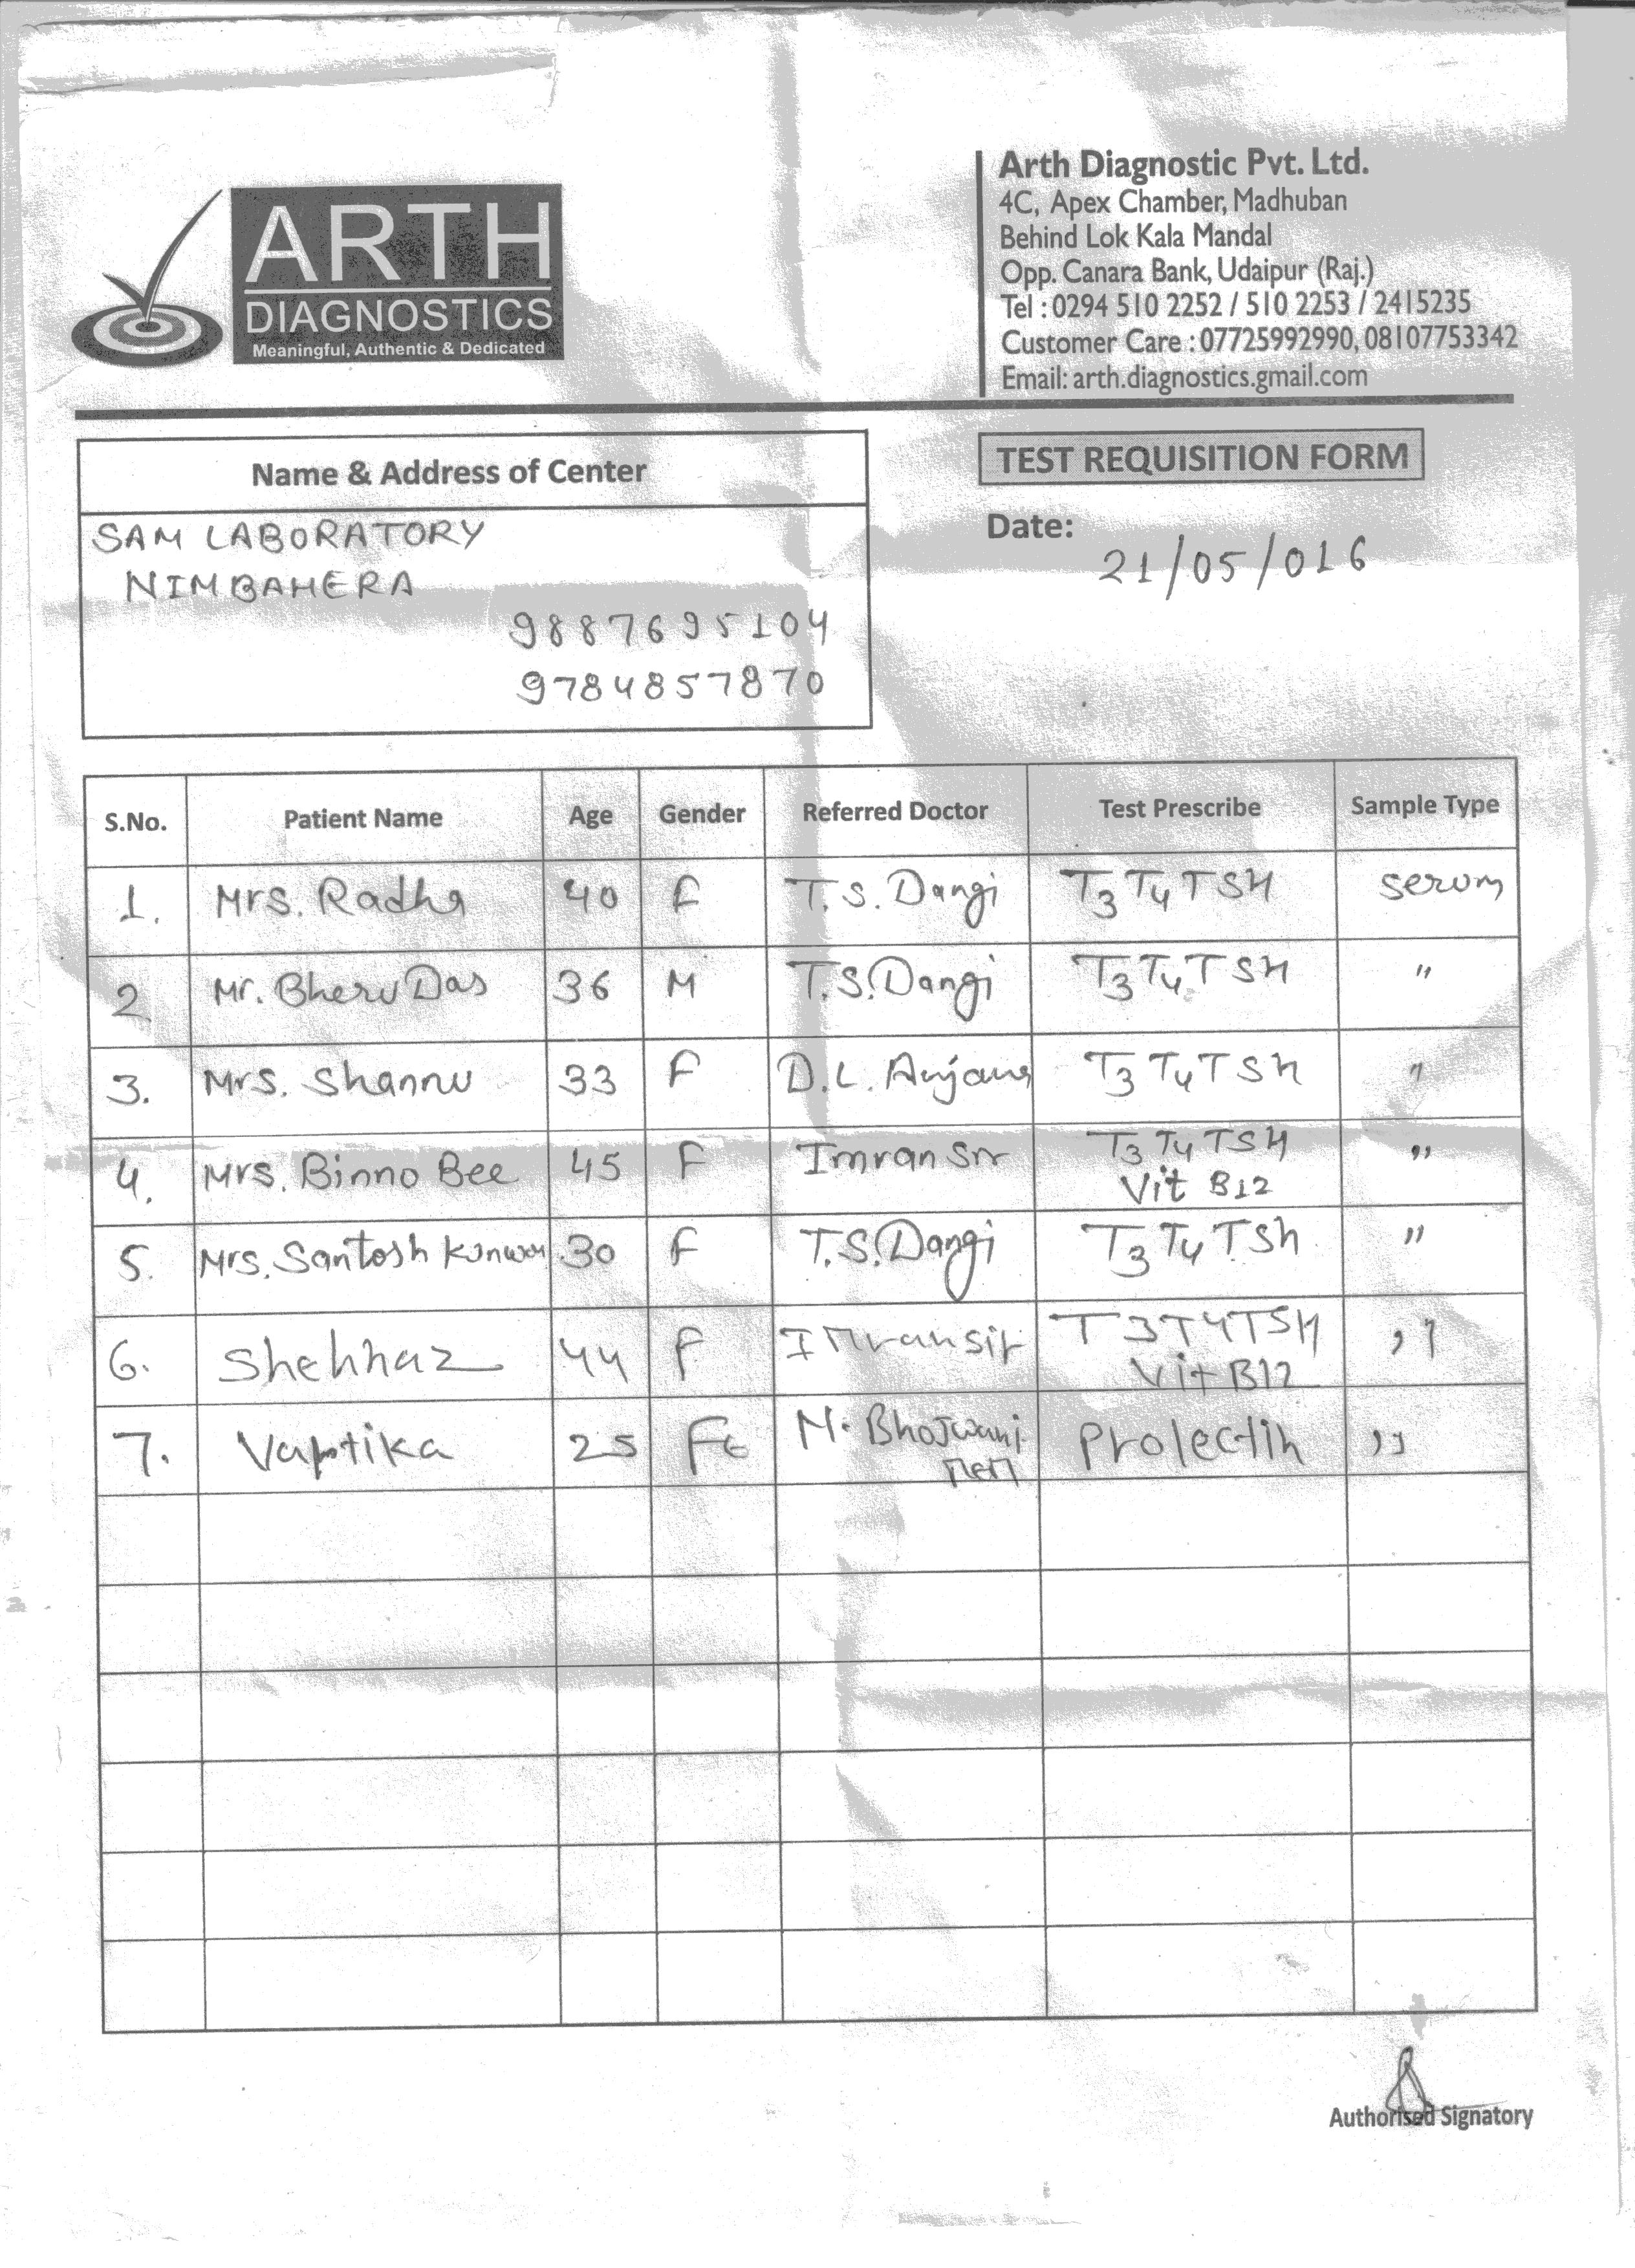 ARTH
DIAGNOSTICS
Meaningful, Authentic & Dedicated
Arth Diagnostic Pvt. Ltd.
4C, Apex Chamber, Madhuban
Behind Lok Kala Mandal
Opp. Canara Bank, Udaipur (Raj.)
Tel : 0294 510 2252 / 510 2253 / 2415235
Customer Care : 07725992990, 08107753342
Email: arth.diagnostics.gmail.com
Name & Address of Center
SAM LABORATORY
NIMBAHERA
9887695104
9784857870
TEST REQUISITION FORM
Date:
21/05/016
S.No. Patient Name Age Gender Referred Doctor Test Prescribe Sample Type
1. Mrs. Radha 40 F T.S. Dangi T3 T4 TSH serum
2 Mr. Bheru Das 36 M T.S. Dangi T3 T4 TSH "
3. Mrs. Shannu 33 F D.L. Anjana T3 T4 TSH "
4. Mrs. Binno Bee 45 F Imran Sir T3 T4 TSH "
Vit B12
5. Mrs. Santosh Kunwar 30 F T.S. Dangi T3 T4 TSh "
6. Shehnaz 44 F Imran sir T3T4TSH "
Vit B12
7. 25 Fe M. Bhojwani Prolectin "
mem
Authorised Signatory